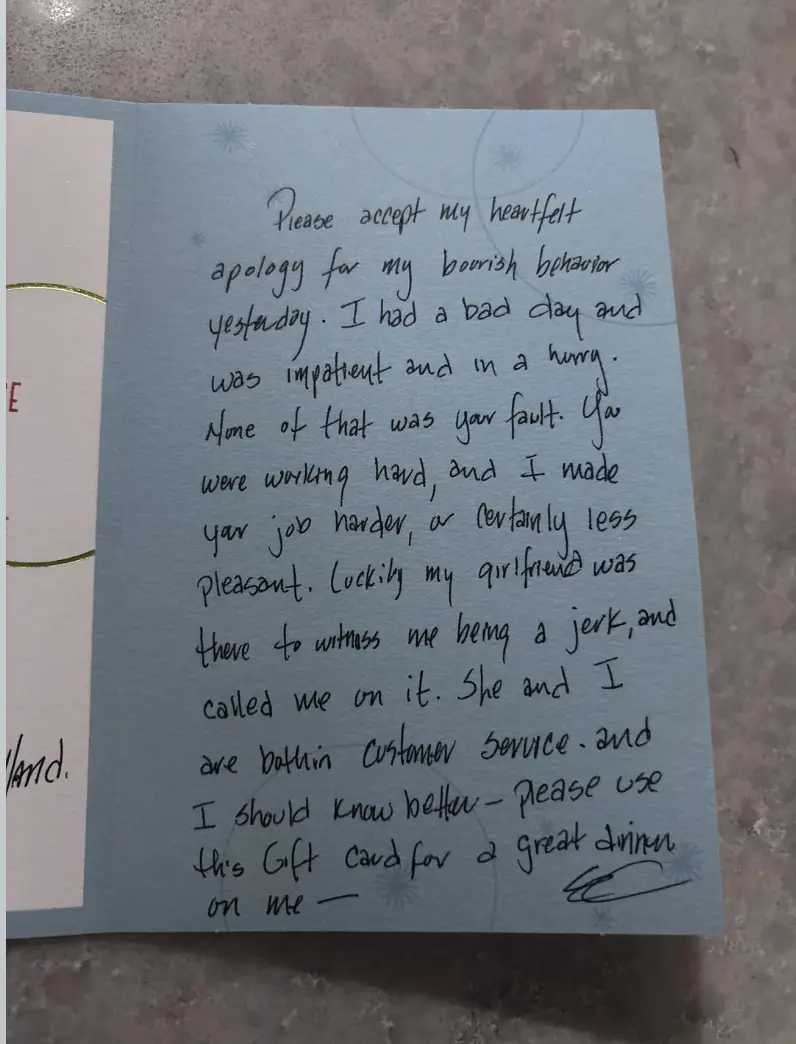 E
land.
Please accept my heartfelt
apology for my boorish behavior
yesterday. I had a bad day and
was impatient and in a hurry.
None of that was your fault. You
were working hard, and I made
your job harder, or certainly less
pleasant. Luckily my girlfriend was
there to witness me being a jerk, and
called me on it. She and I
are both in customer service. and
I should know better – please use
this Gift Card for a great dinner
on me —